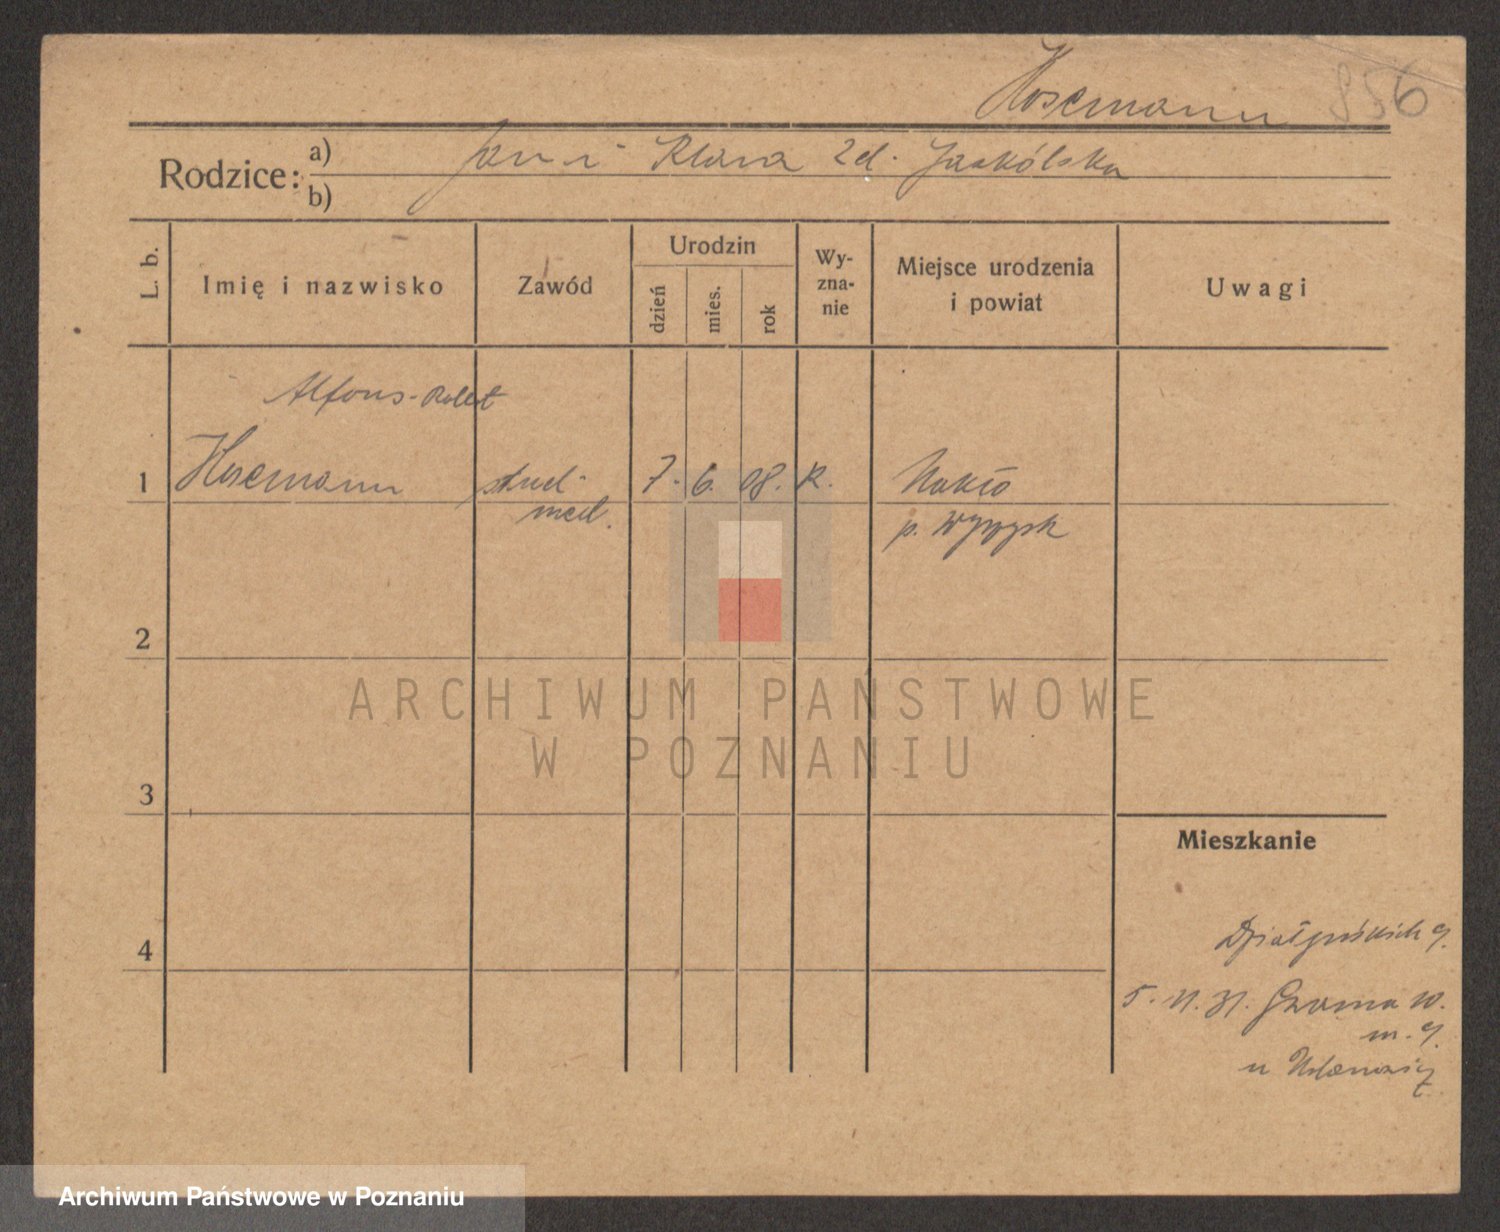 Hosemann 856
Rodzice: a) Jan i Klara zd. Jaskólska
b)
L. b.
Imię i nazwisko
Zawód
Urodzin
dzień
mies.
rok
Wy-
zna-
nie
Miejsce urodzenia
i powiat
Uwagi
Alfons-
1 Hosemann stud. 7. 6. 08. R. Nakło
med. p. Wyrzysk
2
3
4
Mieszkanie
Działyńskich 9.
5. 11. 31.
m. 9.
u
ARCHIWUM PAŃSTWOWE
W POZNANIU
Archiwum Państwowe w Poznaniu